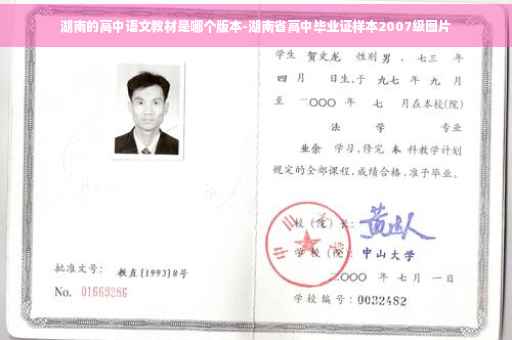 湖南的高中语文教材是哪个版本-湖南省高中毕业证样本2007级图片
学生 贺文龙 性别 男 、七三 年
四 月 日生,于 九七 年 九 月
至 二〇〇〇 年 七 月在本校(院)
法 学 专业
业余 学习,修完 本 科教学计划
规定的全部课程,成绩合格,准予毕业。
校(院)长:
学 校(院): 中山大学
二〇〇〇 年 七 月 一 日
学校编号: 0032482
批准文号: 教直[1993]8号
No. 01669286